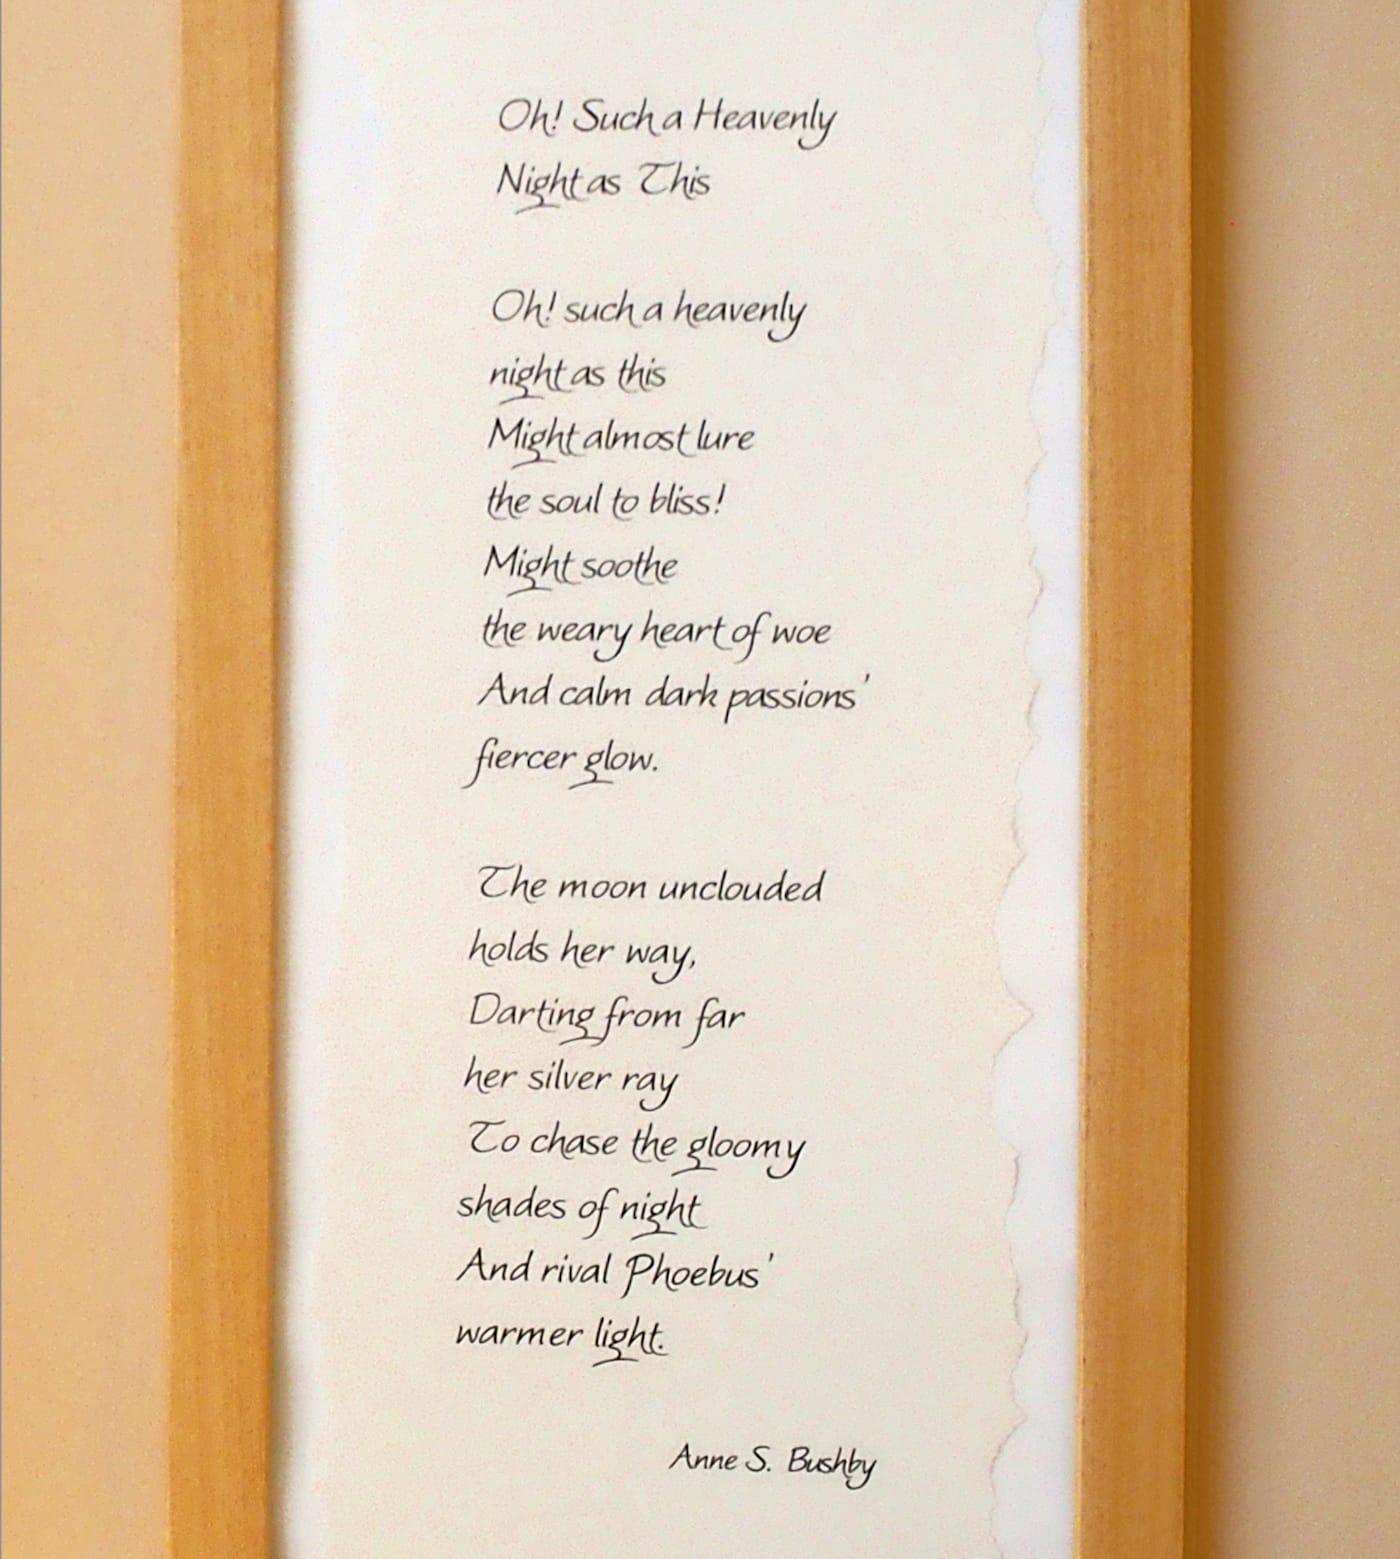 Oh! Such a Heavenly
Night as This
Oh! such a heavenly
night as this
Might almost lure
the soul to bliss!
Might soothe
the weary heart of woe
And calm dark passions'
fiercer glow.
The moon unclouded
holds her way,
Darting from far
her silver ray
To chase the gloomy
shades of night
And rival Phoebus'
warmer light.
Anne S. Bushby